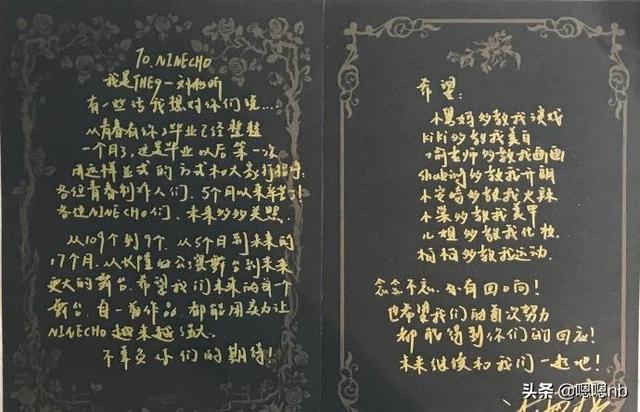 To. NINECHO
我是THE9-刘雨昕
有一些话我想对你们说....
从青春有你2毕业已经整整
一个月了,这是毕业以后第一次
用这样正式的方式和大家打招呼.
各位青春制作人们、5个月以来辛苦!
各位NINECHO们、未来多多关照.
从109个到9个.从5个月到未来的
17个月.从长隆的公演舞台到未来
更大的舞台.希望我们未来的每一个
舞台.每一首作品.都能用实力让
NINECHO越来越强大.
不辜负你们的期待!
希望:
小鼍妈多教我演戏
KiKi多教我美白
喻老师多教我画画
Shaking多教我开朗
小安崎多教我火辣
小棠多教我美甲
儿姐多教我化妆
柯柯多教我运动.
念念不忘.必有回响!
也希望我们的首次努力
都能得到你们的回应!
未来继续和我们一起吧!
头条 @嗯嗯nb